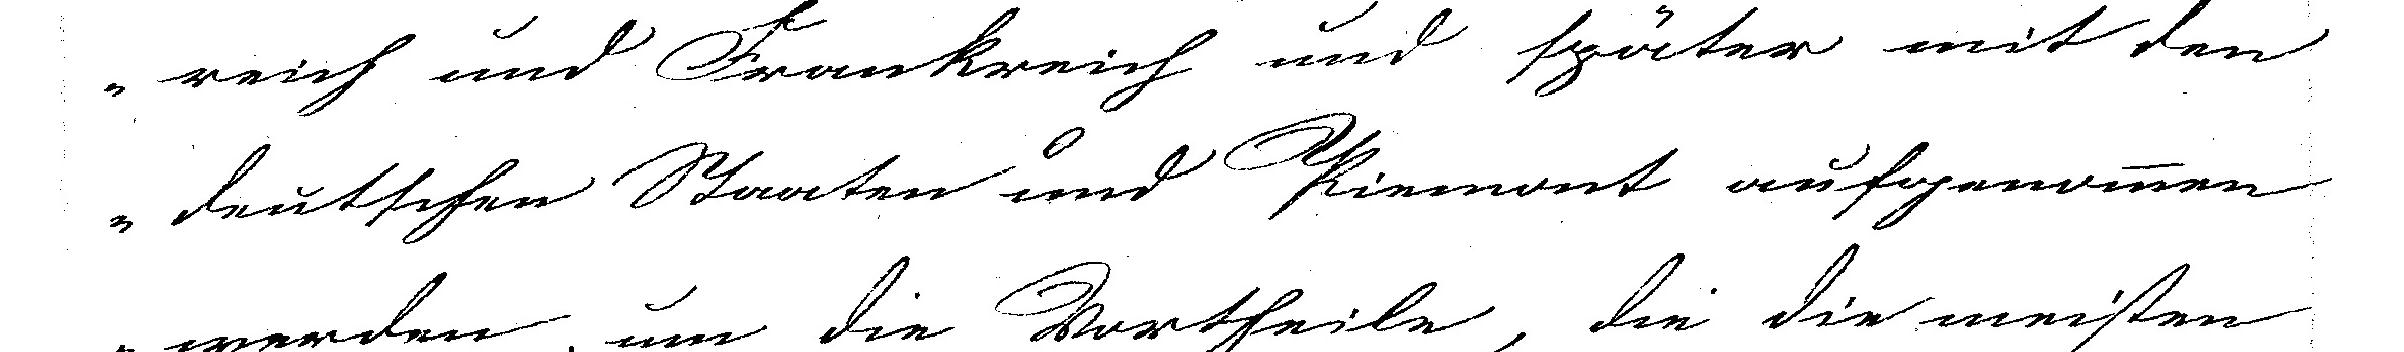 „ reich und Frankreich und später mit den
„ deutschen Staaten und Piemont aufgenom̅en
„ werden, um die Vortheile, die die meisten